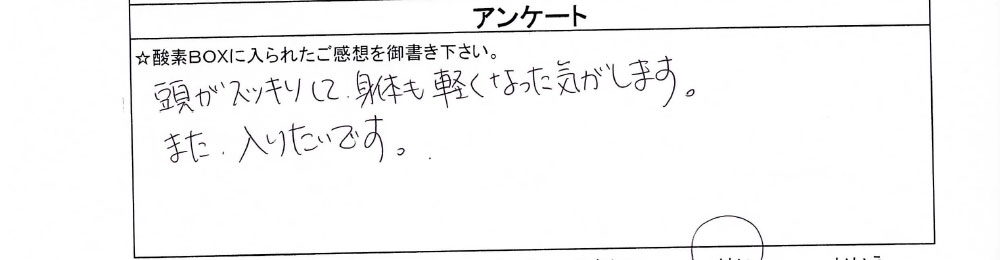 アンケート
☆酸素BOXに入られたご感想を御書き下さい。
頭がスッキリして、身体も軽くなった気がします。
また、入りたいです。